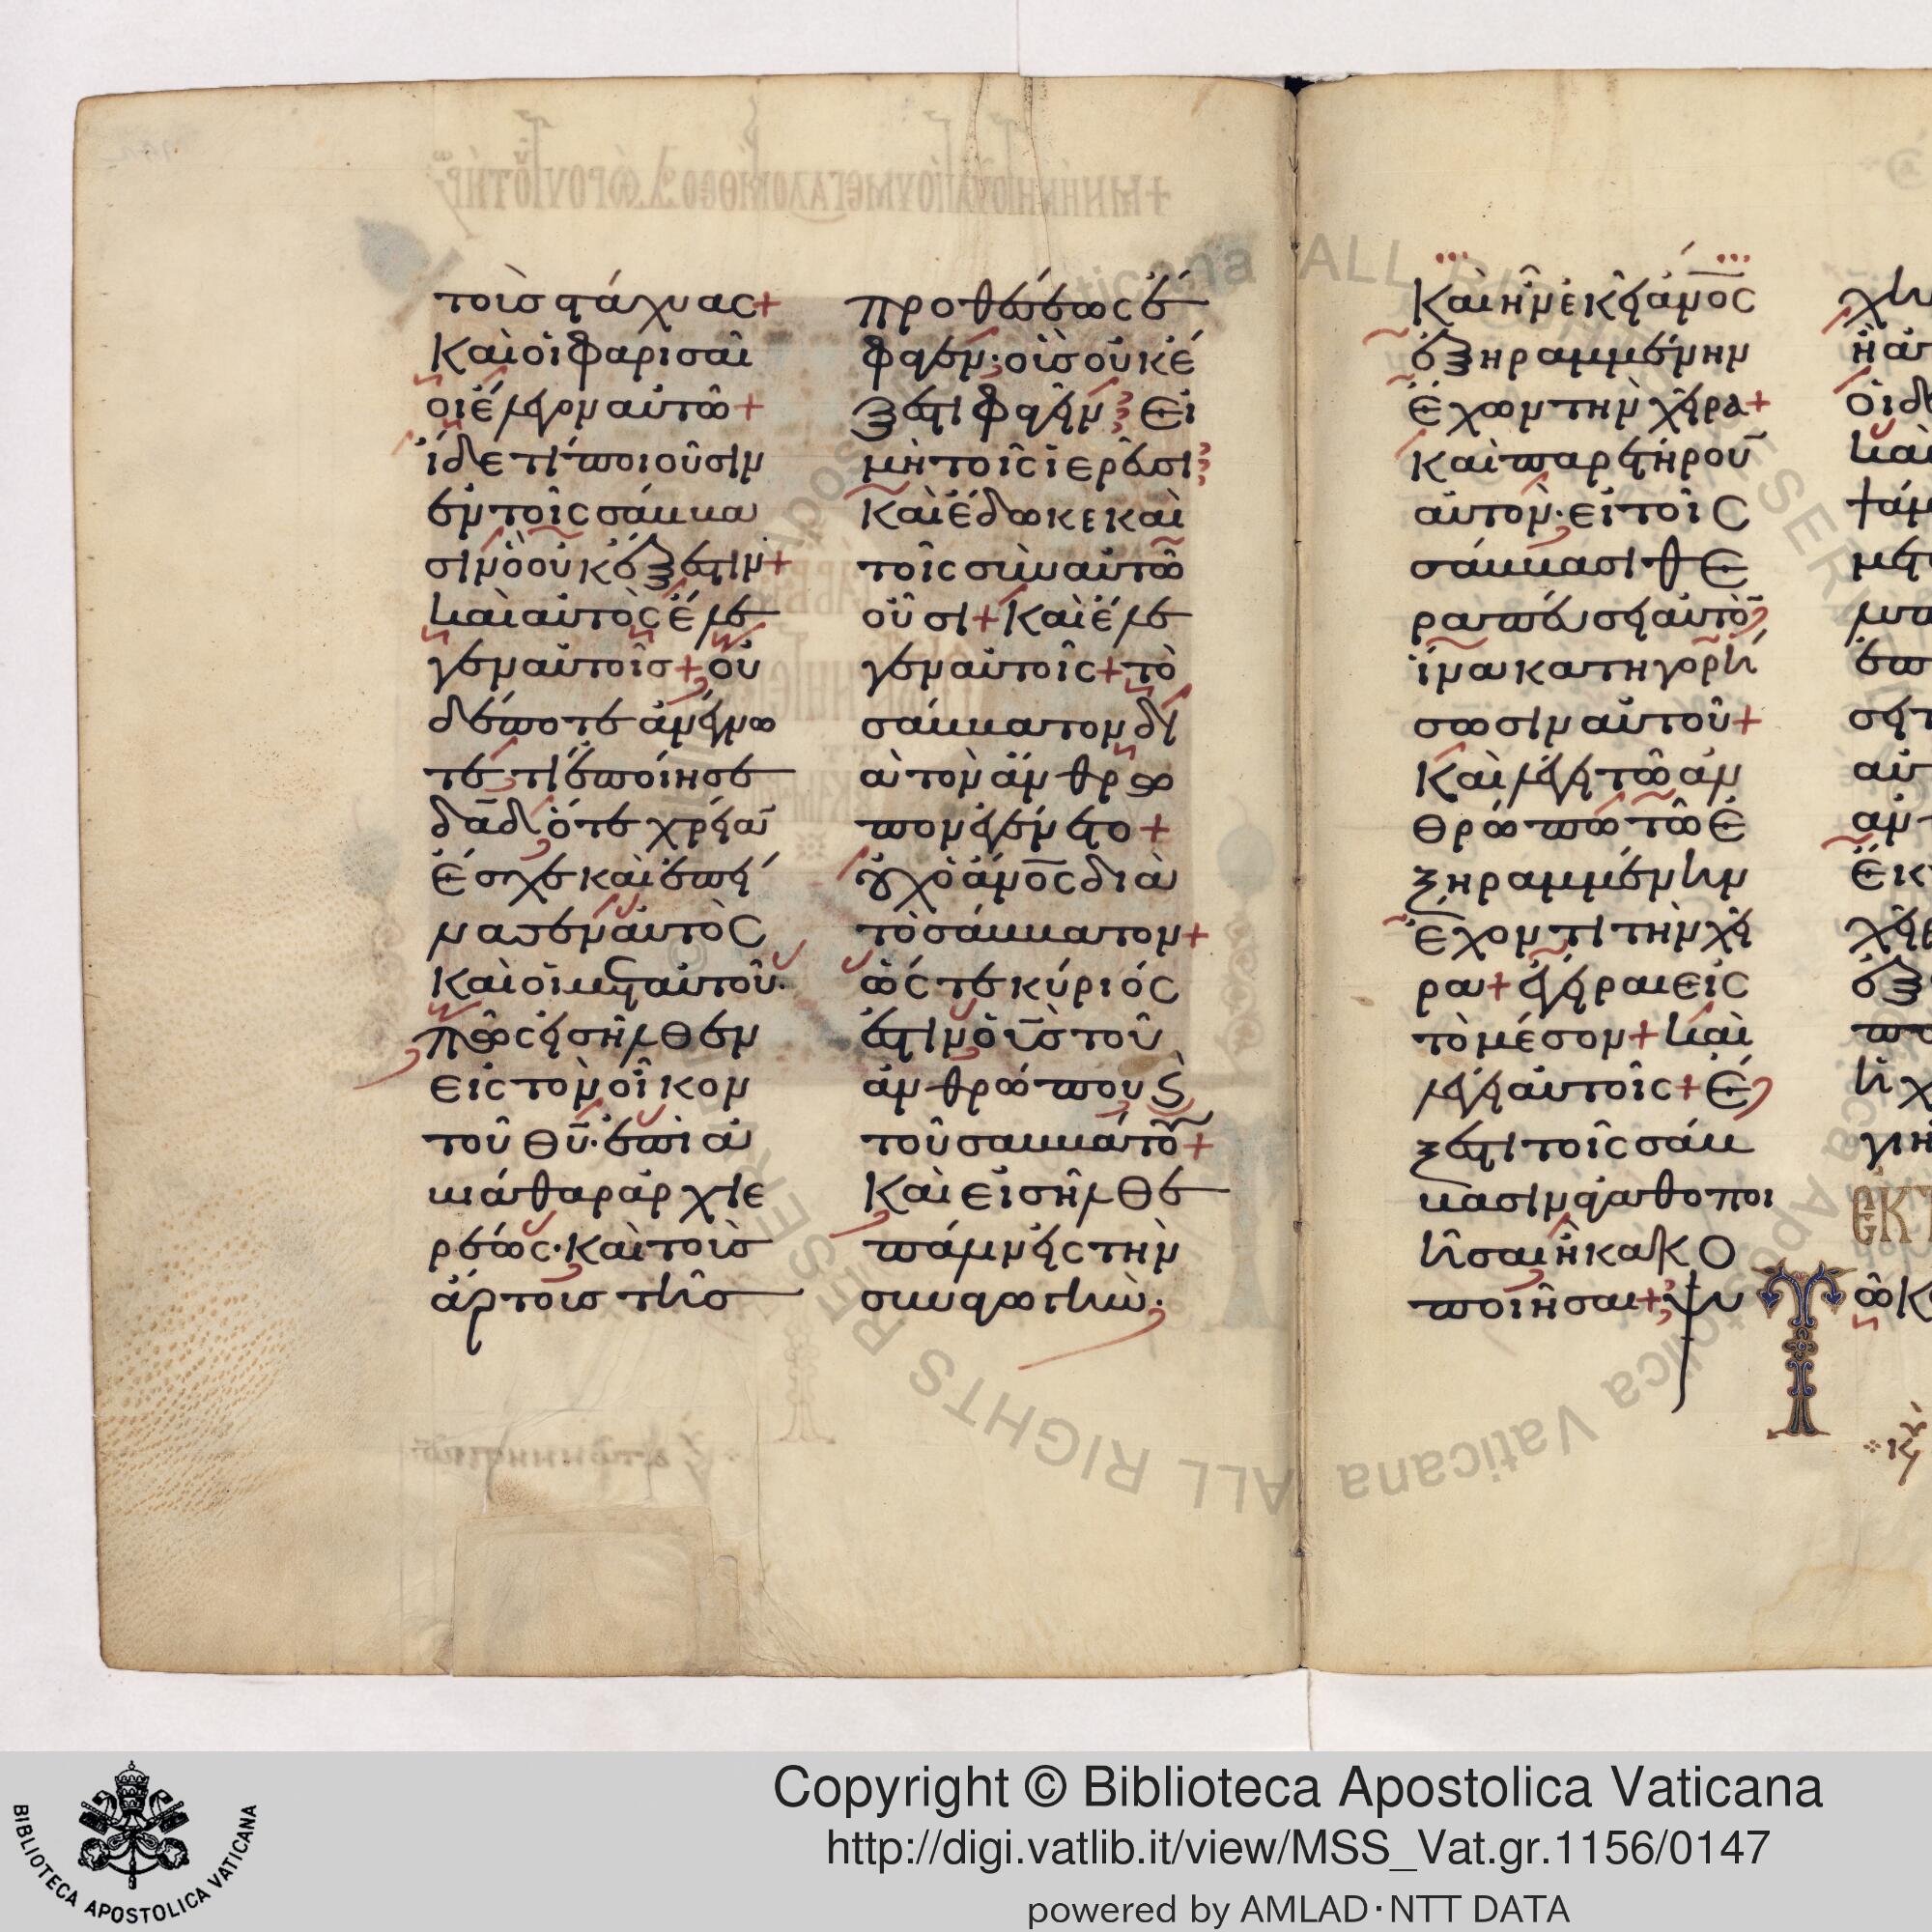 τοὺσ στάχυας+
Καὶ οἱ φαρισαῖ
οι ἔλεγον αὐτῶ+
ἴδε τί ποιοῦσιν
ἐν τοῖς σάββα
σιν ὃ οὐκ ἔξεστιν+
Καὶ αὐτὸς ἔλε
γεν αὐτοῖσ+ οὐ
δέποτε ἀνέγνω
τε τί ἐποίησε
δᾱδ, ὅτε χρείαν
ἔσχε καὶ ἐπεί
νασεν αὐτὸς
Καὶ οἱ μετ αὐτοῦ·
πῶς εἰσῆλθεν
εἰς τὸν οἶκον
τοῦ θῡ· ἐπὶ ἀ
βιάθαρ ἀρχιε
ρέως· Καὶ τοὺσ
ἄρτουσ τῆσ
προθέσεως ἔ
φαγεν· οὓσ οὐκ ἔ
ξεστι φαγεῖν; Εἰ
μὴ τοῖς ἱερεῦσι;
Καὶ ἔδωκε καὶ
τοῖς σὺν αὐτῶ
οὖσι+ Καὶ ἔλε
γεν αὐτοῖς+ τὸ
σάββατον δι
ὰ τὸν ἄνθρω
πον ἐγένετο+
οὐχ ὁ ᾱνο̄ς διὰ
τὸ σάββατον+
ὥς τε κύριός
ἐστιν ὁ ῡς τοῦ
ἀνθρώπου καὶ
τοῦ σαββάτου+
Καὶ εἰσῆλθε
πάλιν εἰς τὴν
συναγωγὴν·
Καὶ ἦν ἐκεῖ ᾱνο̄ς
ἐξηραμμένην
ἔχων τὴν χεῖρα+
Καὶ παρετήρουν
αὐτὸν· εἰ τοῖς
σάββασι θε
ραπεύσει αὐτὸν
ἵνα κατηγορή
σωσιν αὐτοῦ+
Καὶ λέγει τῶ ἀν
θρώπω τῶ ἐ
ξηραμμένην
ἔχοντι τὴν χεῖ
ρα+ ἔγειραι εἰς
τὸ μέσον+ Καὶ
λέγει αὐτοῖς+ ἔ
ξεστι τοῖς σάβ
βασιν ἀγαθοποι
ῆσαι ἢ κακο
ποιῆσαι+; ψυ
Copyright © Biblioteca Apostolica Vaticana
http://digi.vatlib.it/view/MSS_Vat.gr.1156/0147
powered by AMLAD·NTT DATA
BIBLIOTECA APOSTOLICA VATICANA